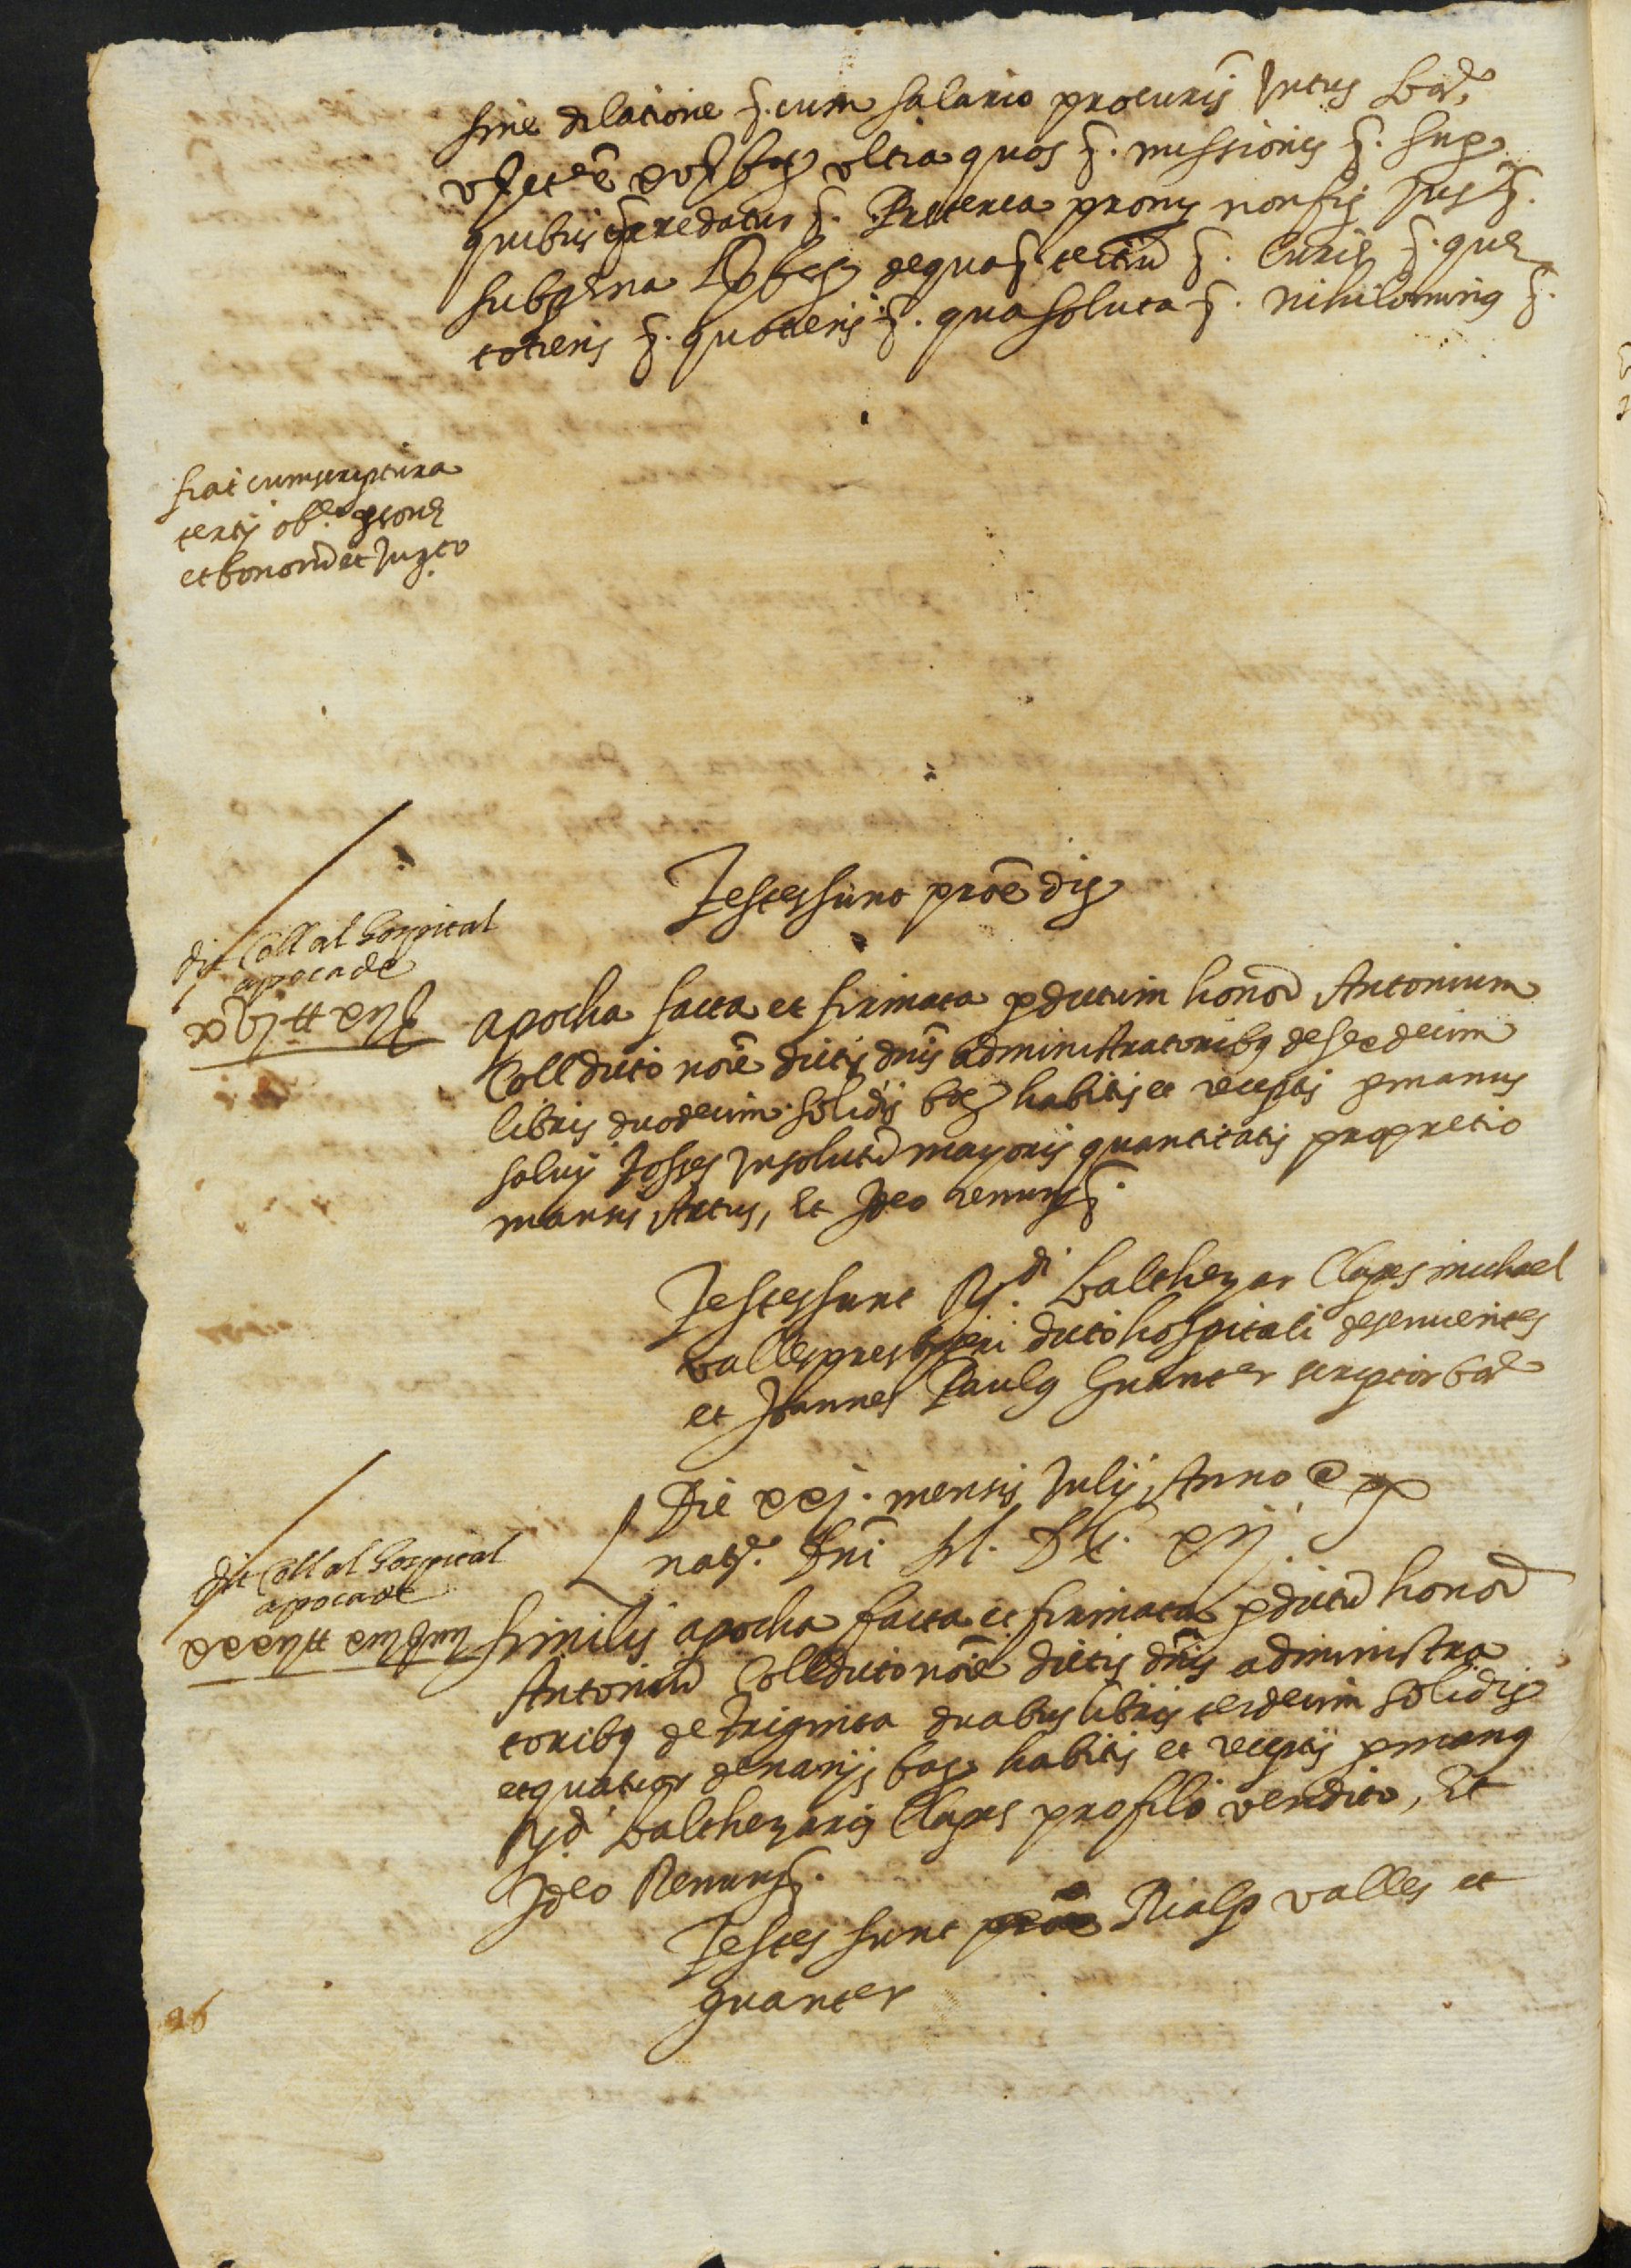 sine dilatione §. cum salario procuris Intus bar.
ultra quos §. missionis §. sup
quibus credatur §. Preterea promis non fir Jus §.
subpena bar dequa § tertiũ §. Curie §. que
totiens §. quotiens §. qua soluta §. nihilominus §.
fiat cum scriptura
tertij obe. psone
et bonorũ et Jur.to
Testes sunt proẽ dis
dit Coll al hospital
apoca de
xvj ll xij s
apocha facta et firmata p dictum honorẽ Antonium
Coll dicto noẽ dictis dnĩs administratoribus de sexdecim
libris duodecim solidis bar habitis et receptis p manus
saluij Josses Insolutũ mayoris quantitatis pro pretio
mansi Artus, Et Ideo renun §.
Testes sunt Rdi. balthezar Clapes michael
valles presbiteri dicto hospitali deseruientes
et Joannes Paulus Guanter scriptor bar
Die xxj. mensis Julij Anno a
natẽ. Dni M. DC. xij.
dit Coll al hospital
apoca de
xxxij ll xiij s iiij
Similis apocha facta et firmata p dictũ honorẽ
Antoniũ Coll dicto noẽ dictis dnĩs administra
toribus de triginta duabus libris terdecim solidis
et quatuor denarijs bar habitis et receptis p manus
Rdi balthezaris Clapes pro filo vendito, Et
Ideo Renun §.
Testes sunt Rialp valles et
guanter